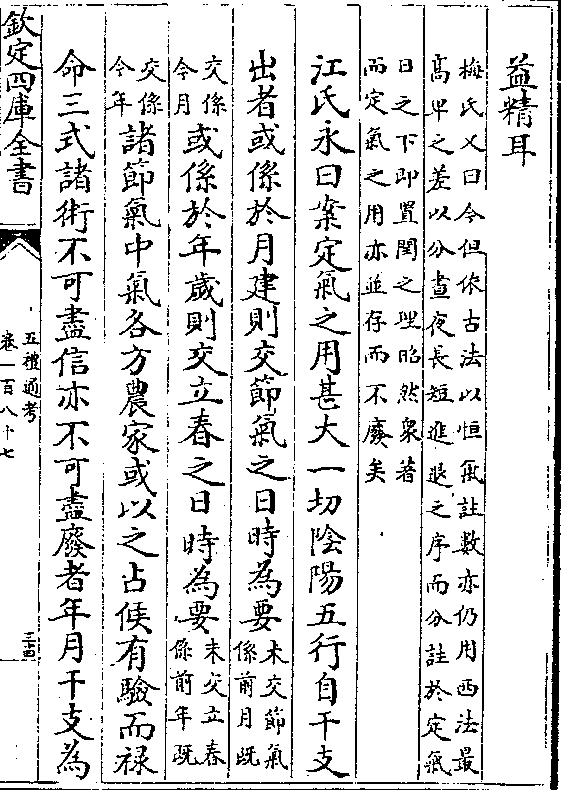 益精耳
梅氏又曰今但依古法以恒氣註數亦仍用西法最
高卑之差以分晝夜長短進退之序而分註於定氣
日之下即置閏之理昭然衆著
而定氣之用亦並存而不廢矣
江氏永曰案定氣之用甚大一切陰陽五行自干支
出者或係於月建則交節氣之日時為要未交節氣係前月既
交係今月或係於年歲則交立春之日時為要未交立春係前年既
交係今年諸節氣中氣各方農家或以之占候有驗而禄
命三式諸術不可盡信亦不可盡廢者年月干支為
欽定四庫全書
五禮通考
卷一百八十七
三十四